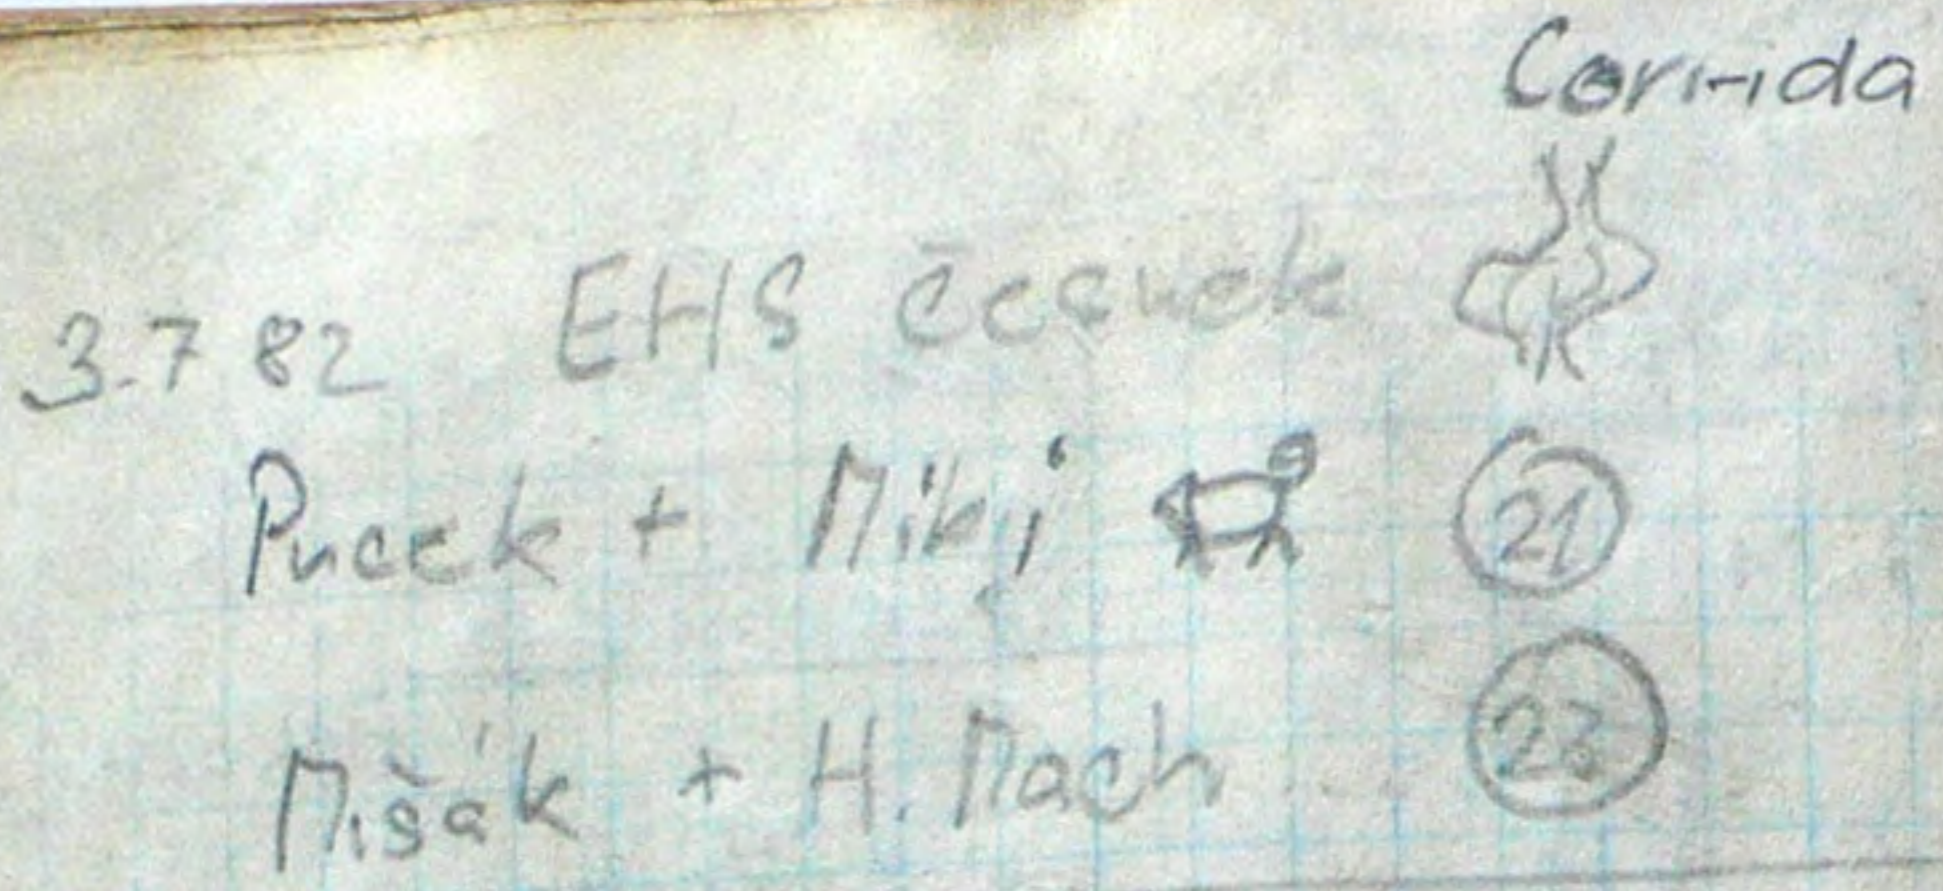 Corrida
3.7 82 EHS česnek
Pucek + Miki 21
Mišák + H. Mach 23